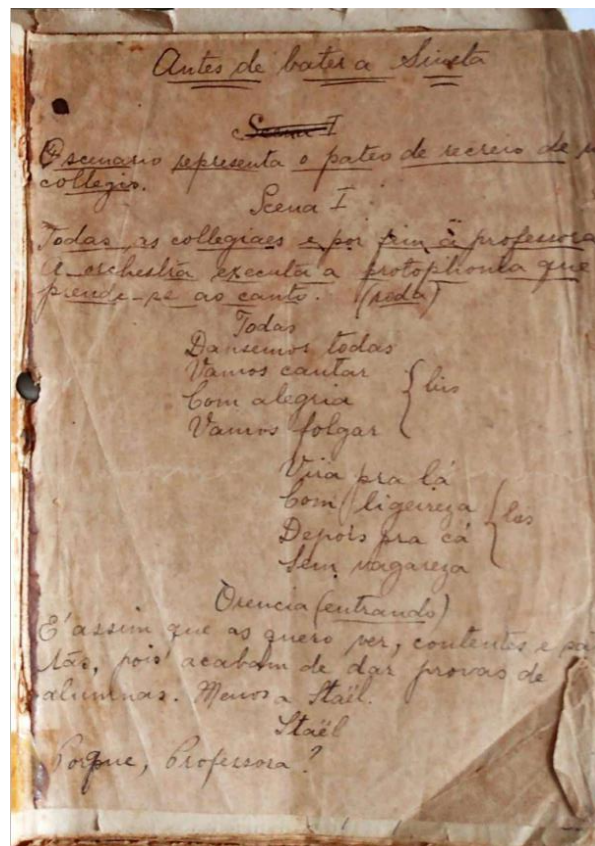 Antes de bater a Sineta
Scena I
O scenario representa o pateo de recreio de
collegio.
Scena I
Todas as collegiaes e por fim a professora
A orchestra executa a protophonia que
prende-se ao canto. (roda)
Todas
Dansemos todas
Vamos cantar
Com alegria { bis
Vamos folgar
Vira pra lá
Com ligeireza { bis
Depois pra cá
Sem vagareza
Orencia (entrando)
E' assim que as quero ver, contentes e
pois acabam de dar provas de
alumnas. Menos a Staël.
Staël
Porque, Professora?